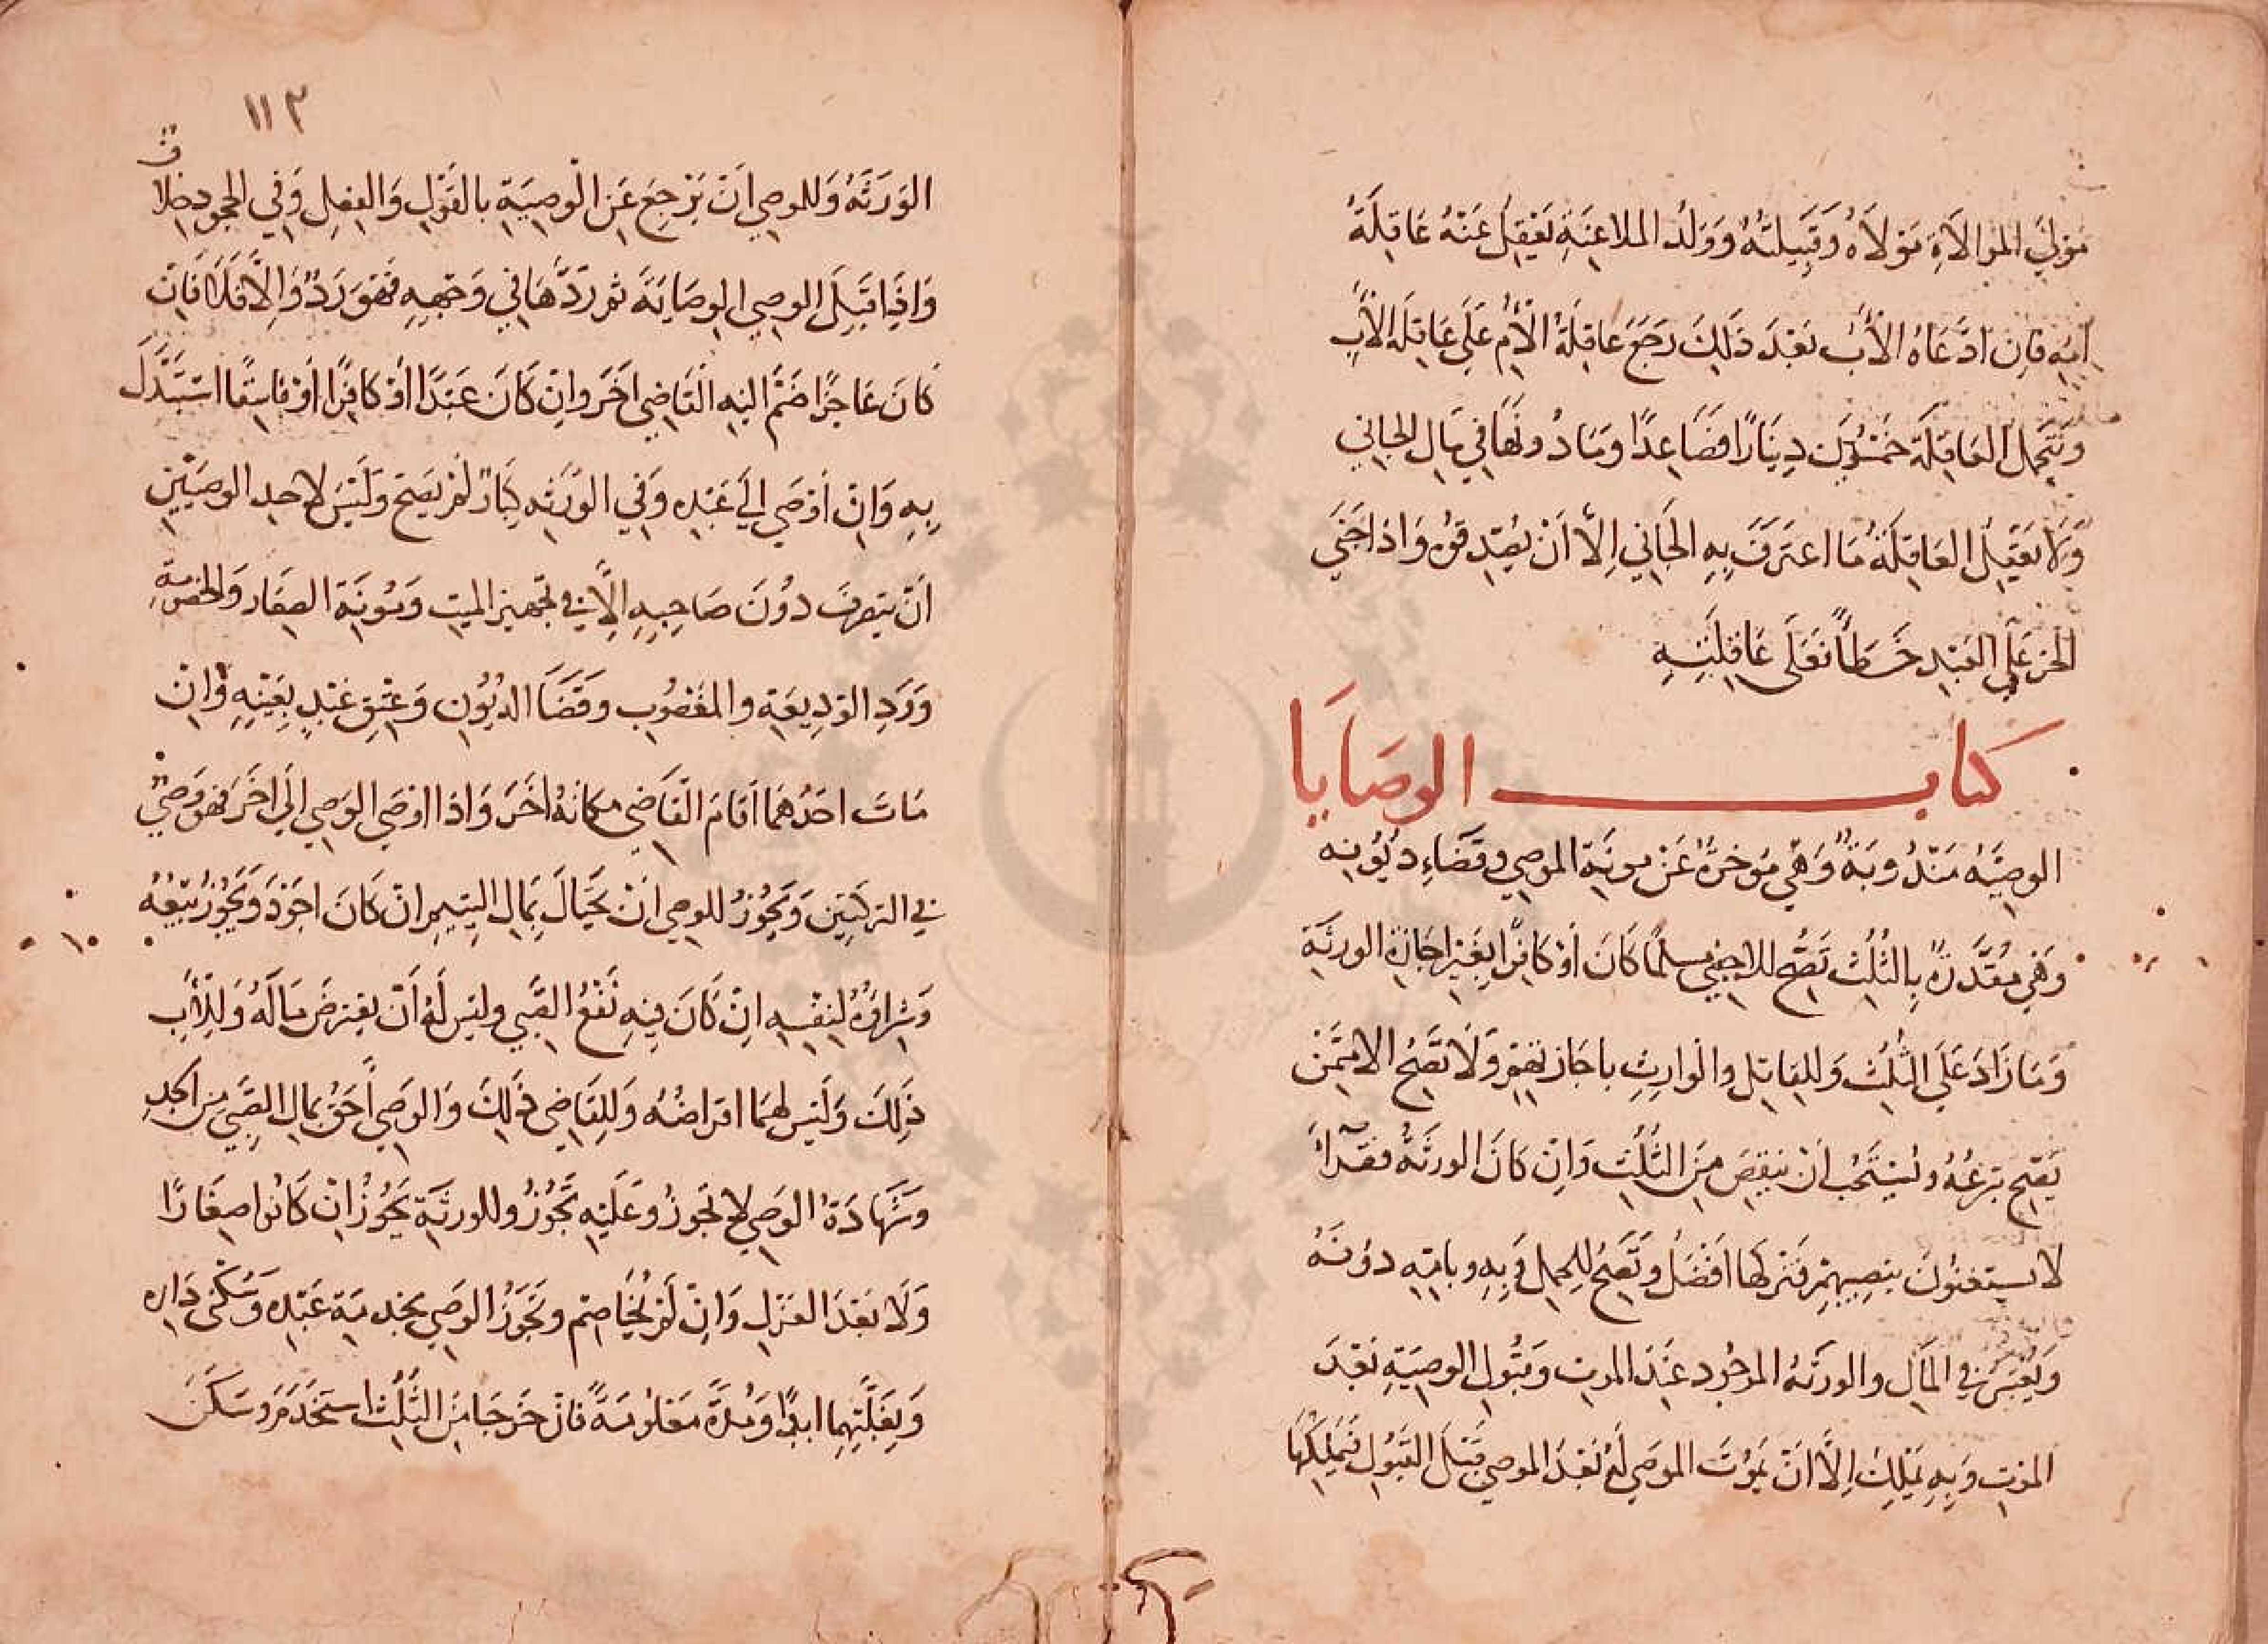 مَوْلَى الموَالاَةِ مَوْلاَهُ وَقَبِيلتُهُ وَوَلَدُ الملاعِنَةِ يَعْقِلُ عَنْهُ عَاقِلَةُ
اُمِّهِ فَاِن ادَّعَاهُ الأَبُ بَعْدَ ذَلِكَ رَجَعَ عَاقِلَةُ الأُمِ عَلَى عَاقِلَةِ الأَبِ
وَتَتَحَمل العَاقِلَة خَمْسُين دِينَارًا فَصَاعِدًا وَمَا دُونَهَا فِي مَالِ الجَانِي
وَلَا تَعْقِلُ العَاقِلَةُ مَا اعتَرَفَ بِهِ الجَانِي اِلَّا اَنْ يُصَدِقُوهُ وَاذا جَنَى
الحُر عَلَى العَبْدِ خَطَأً فَعَلَى عَاقِلَتِهِ
كتاب الوصَايَا
الوصِيَّهُ مَنْدُوبَةٌ وَهَي مَوخرَةٌ عَنْ مونَةِ الموصِي وقَضَاءِ دُيُونِهِ
وَهَي مُقَدَّرَةٌ بِالثُلُثِ تَصُحُ للاجنَبِي مسلمًا كَانَ أَوْ كافِرًا بِغَيْرِ اجَازَةِ الورثَةِ
وَمَا زَادَ عَلَى الثُلُثِ وَللِقاتِلِ والوارِثِ باجَازتهِمْ وَلَا تَصِحُ الا مِمَّنْ
يَصِح تبَرعُهُ ويُسْتَحَبُ اَنْ يَنقِصَ مِنَ الثُلُثِ وَاِنْ كَانَ الورثَةُ فقَرَآءً
لا يستغنُونَ بنصِيبِهِمْ فَترْكهَا اَفْضَلُ وَتَصِحُ للِحمل وَبِهِ وبامِّهِ دوُنَهُ
وَيُعْتَبَرُ في المَالِ والورثَهُ الموجُود عِنْدَ الموتِ وَقبُولِ الوصِيَةِ بَعْدَ
الموْتِ وَبِهِ يَمْلِكُ اِلَّا اَنْ يَمُوْتَ الموصَي لَهُ بَعْدَ الموصِي قَبْلَ القَبُولِ فَيَمْلِكُهَا
١١٣
الوَرَثَهُ وَللموصِي اَنْ يَرْجِعَ عَنِ الْوصِيَةِ بالقَوْلِ وَالفِعلِ وَفي الجحودِ خلاف
وَاذَا قَبِلَ الوصِي الوِصَايَةَ ثم رَدَّهَا في وَجهِهِ فَهوَ رَدٌ وَاِلَّا فَلَا فَاِنْ
كَانَ عَاجِزًا ضَمَّ اليْهِ القَاضِي اخَرَ وانْ كَانَ عَبْدًا اَوْ كافِرًا اَوْ فاسِقًا اسْتَبْدَلَ
بِهِ وَاِنْ اَوْصَي اِلَى عَبْدِهِ وَفي الورَثَهِ كِبَارٌ لمْ يَصِح ولَيْسَ لاحدِ الوصِيَيْنِ
اَنْ يتصرفَ دوُنَ صَاحِبِهِ اِلَّا في تجهيز الميتِ وَمُونَةِ الصِغَار وَالخصُومَةِ
وَرَدِ الوَدِيعَةِ والمغْصُوبِ وقَضَا الديُونِ وَعِتْقِ عَبْدٍ بِعَيْنِهِ وَاِنْ
مَاتَ احَدُهُمَا اَقَامَ القَاضي مكانَهُ اخَرَ وَاذا اوْصَي الوَصِي اِلَى اخَرَ فهوَ وَصيٌّ
في التركتَيْنِ وَيَجُوْزُ للوصِي اَنْ يَحْتالَ بِمَالِ اليتِيمِ اِنْ كَانَ اجوَدَ وَيَجُوْزُ بَيْعُهُ
وَشِرَاؤُهُ لنِفْسِهِ اِنْ كَانَ فِيهِ نَفْعُ الصَّبي وليس لَهُ اَنْ يقترِضَ مَالَهُ وَلِلْأَبِ
ذَلِكَ وَلَيْسَ لهُمَا اقراضُهُ وَلِلقَاضِي ذَلِكَ وَالوصِي اَحَقُ بمَالِ الصَّبِي مِن الجَدِ
وَشَهَادَةُ الوَصِي لا تجوزُ وَعَلَيْهِ تَجُوْزُ وللورثَةِ يَجُوْزُ اِنْ كَانُوا صِغَارًا
وَلَا بَعْدَ العَزْلِ وَاِنْ لَمْ يُخَاصِمْ وتَجوزُ الوصِي بخدمَةِ عَبْدِهِ وَسُكْنَى دَارِهِ
وَبِغَلَّتِهِمَا ابدًا وَمُدَّةً مَعْلُومَةً فَاِنْ خَرَجَا مِنَ الثُلُثِ اسْتَخْدَمَ وَسَكَنَ